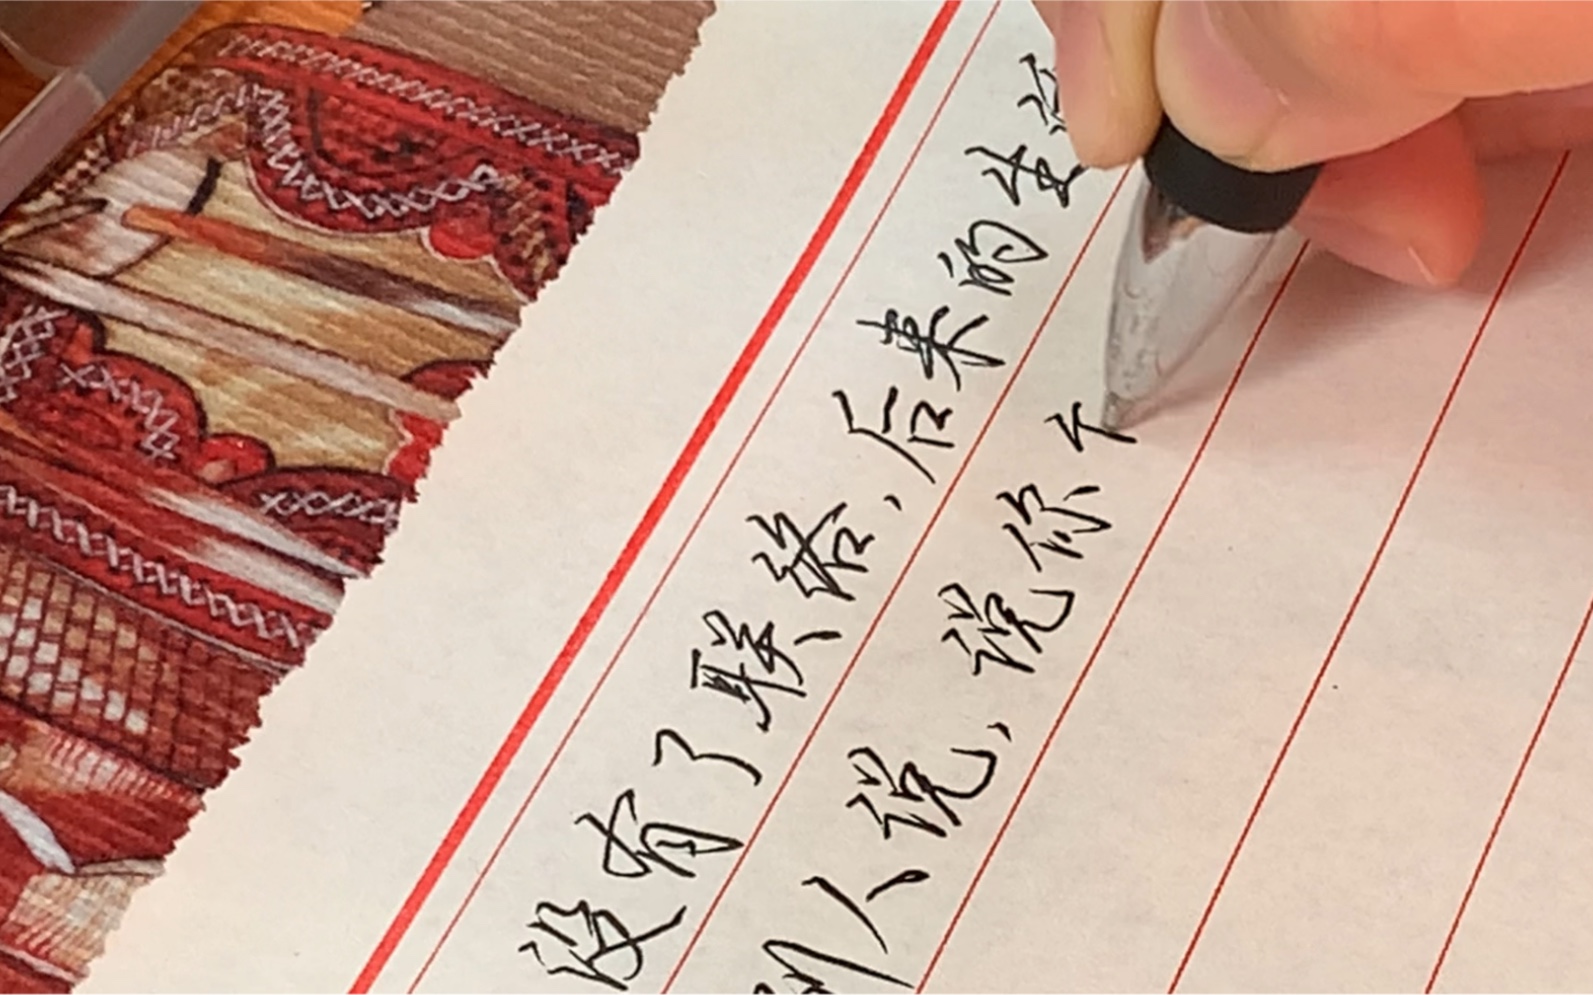 没有了联络，后来的生
别人说，说你